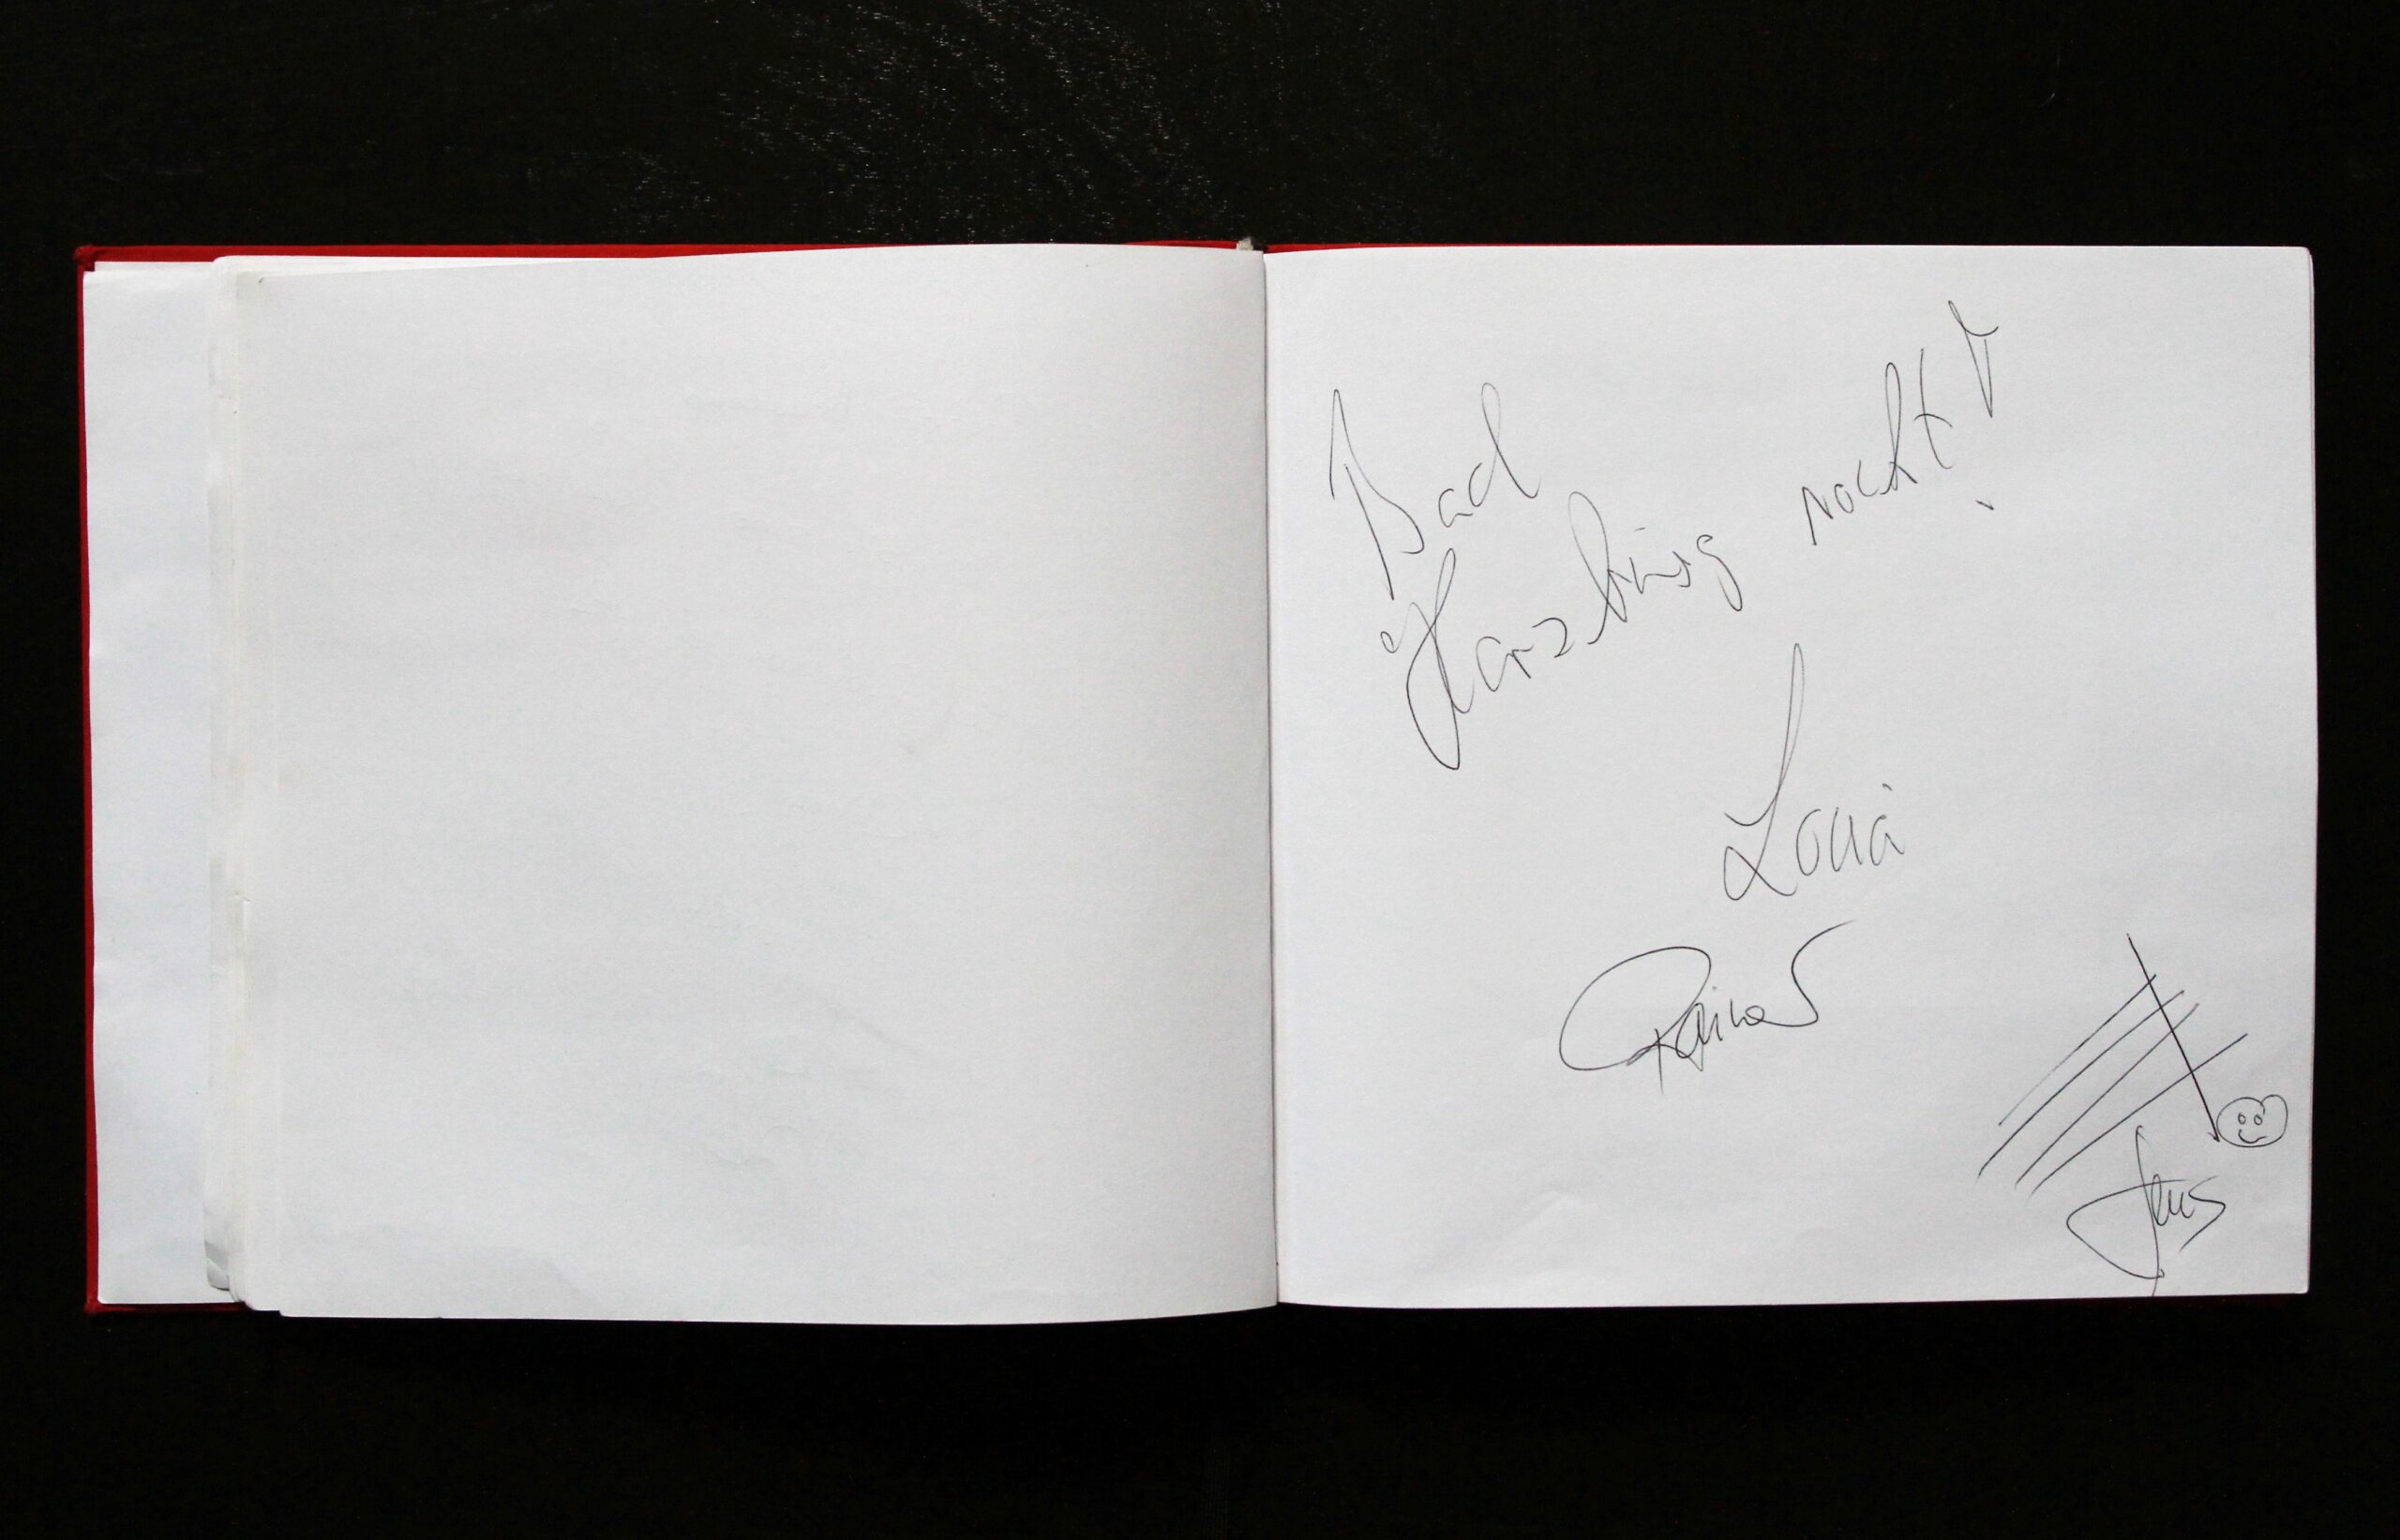 Bad
Harzburg rockt!
Rainer
Jens